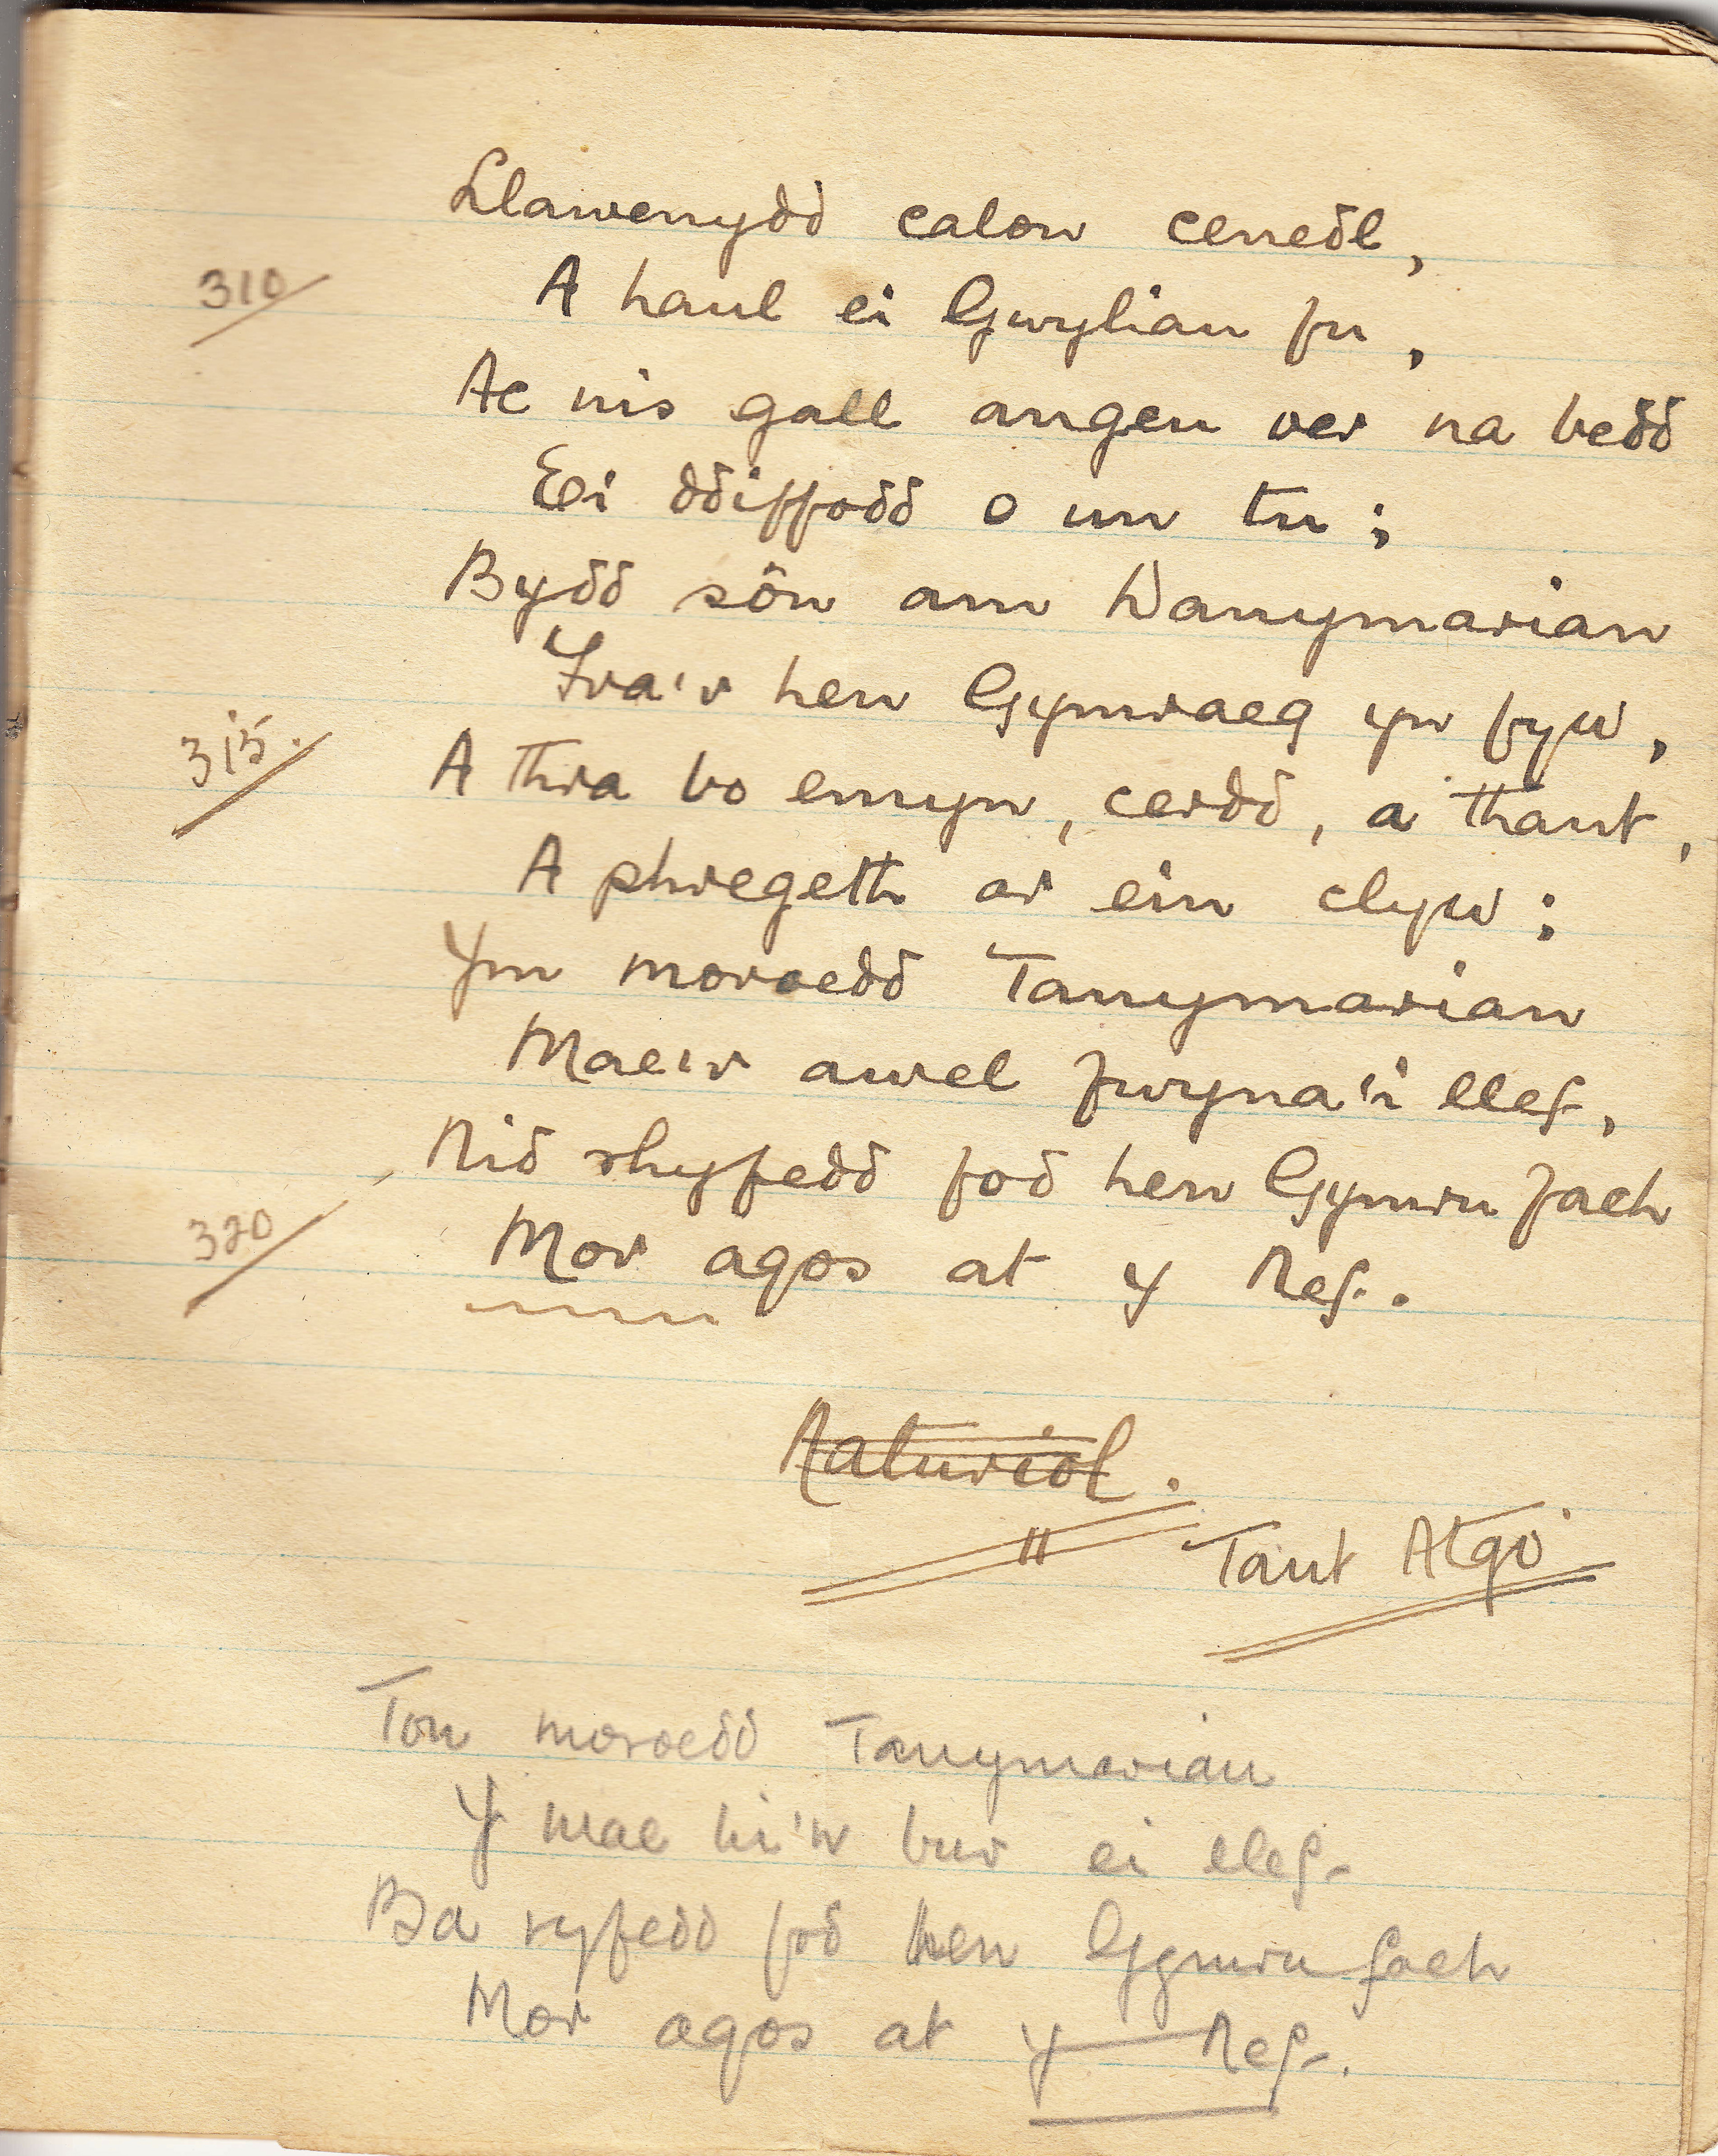 Llawenydd calon cenedl,
310 A haul ei Gwyliau fu,
Ac nis gall angeu oer na bedd
Ei ddiffodd o un tu;
Bydd sôn am Danymarian
Tra'r hen Gymraeg yn fyw,
315. A thra bo emyn, cerdd, a thant,
A phregeth ar ein clyw;
Ym moroedd Tanymarian
Mae'r awel fwyna'i llef,
Nid rhyfedd fod hen Gymru fach
320 Mor agos at y Nef.
Naturiol.
Tant Atgo
Ton moroedd Tanymarian
Y mae hi'n bur ei llef
Ba ryfedd fod hen Gymru fach
Mor agos at y Nef.